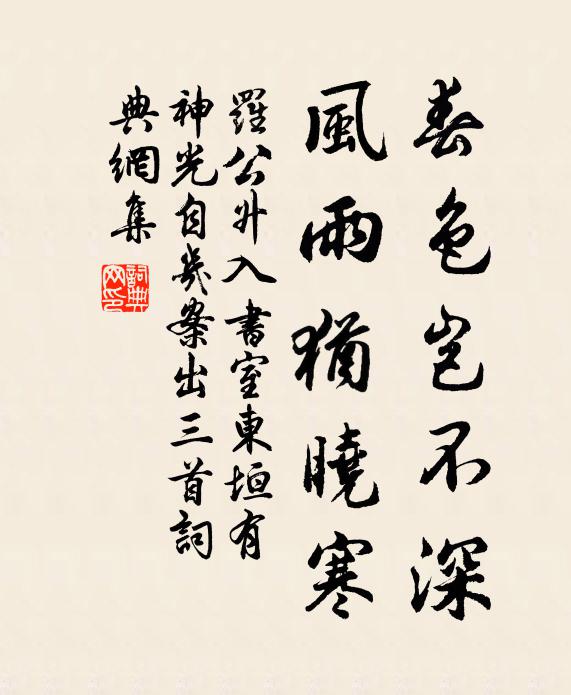 春色豈不深
風雨猶曉寒
羅公升入書室東垣有
神光自幾案出三首詞
典網集
詞典网印